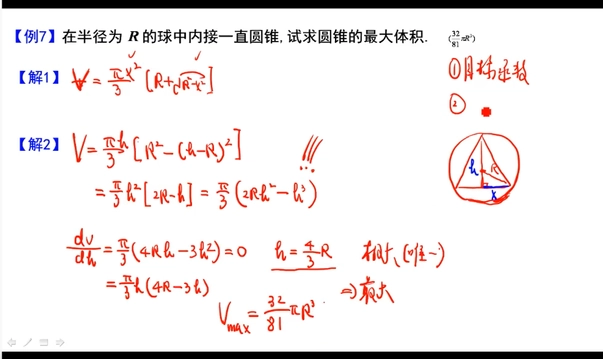 【例7】在半径为 R 的球中内接一直圆锥,试求圆锥的最大体积. (32/81 πR³)
①目标函数
【解1】 V = π/3 x² [R+√(R²-x²)]
②
【解2】 V = π/3 h [R²-(h-R)²] !!!
= π/3 h² [2R-h] = π/3 (2Rh²-h³)
h R
x
dv/dh = π/3 (4Rh-3h²) = 0 h = 4/3 R 极大、(唯一)
= π/3 h (4R-3h) ⇒ 最大
Vmax = 32/81 πR³